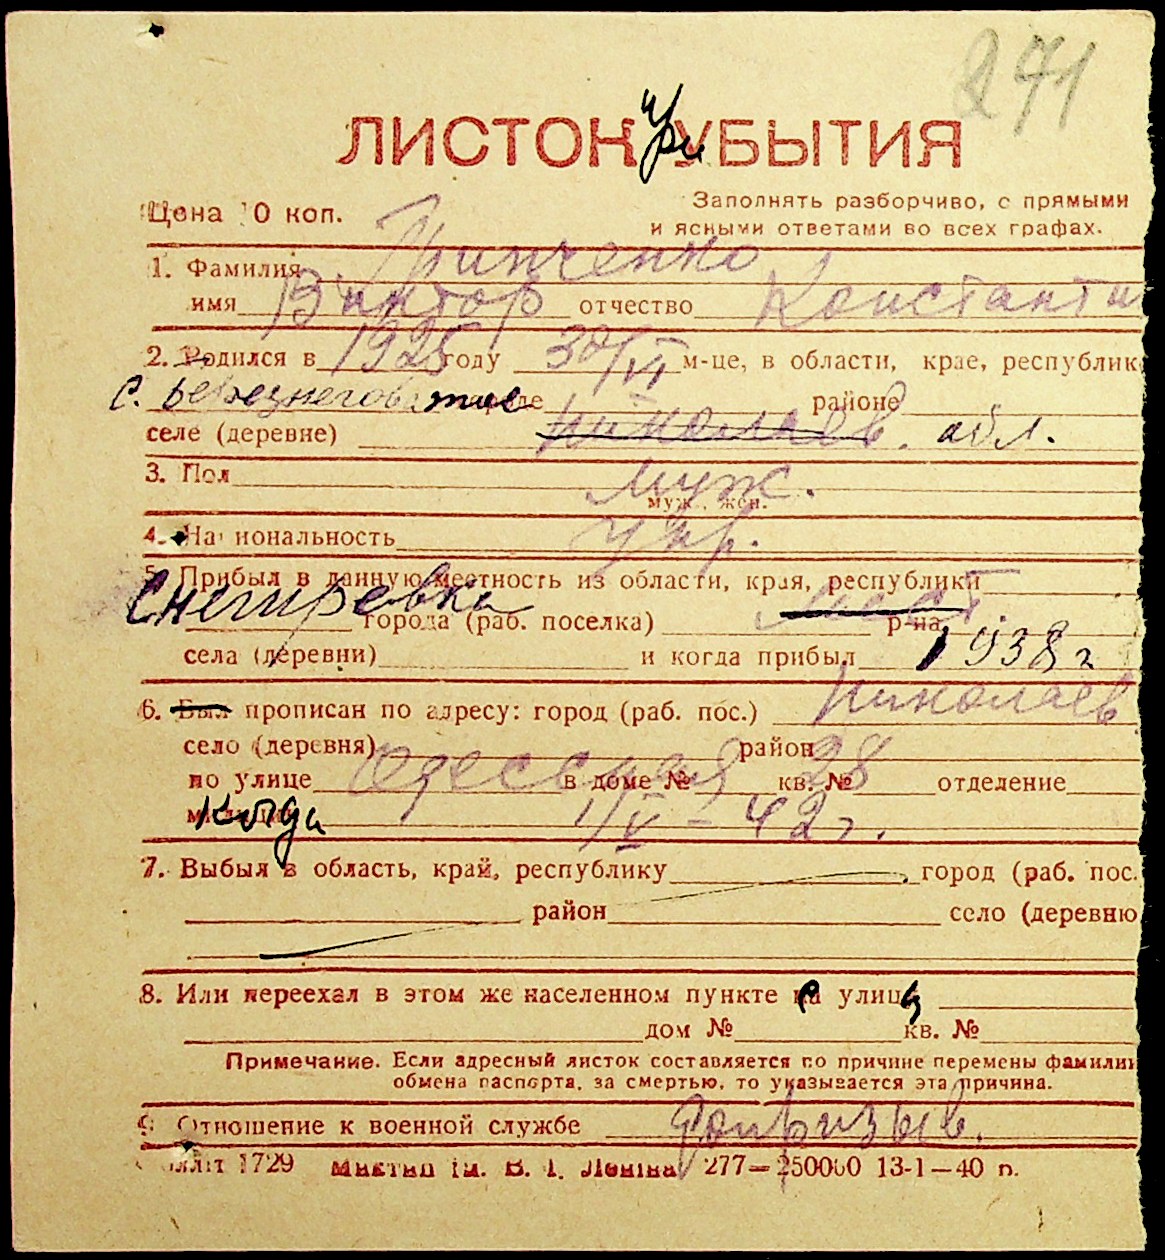 271
ЛИСТОК при УБЫТИЯ
Цена 10 коп.
Заполнять разборчиво, с прямыми
и ясными ответами во всех графах.
1. Фамилия Гринченко
имя Виктор отчество Константи
2. Родился в 1925 году 30/VI м-це, в области, крае, республик
с. Березнеговатое городе районе
селе (деревне) Николаев. обл.
3. Пол муж.
муж., жен.
4. Национальность укр.
5. Прибыл в данную местность из области, края, республики
Снегиревка города (раб. поселка) р-на
села (деревни) и когда прибыл 1938 г
6. Был прописан по адресу: город (раб. пос.) Николаев
село (деревня) район
по улице Одесская в доме № 28 кв. № отделение
милиции когда 1/V – 42 г.
7. Выбыл в область, край, республику город (раб. пос.
район село (деревню
8. Или переехал в этом же населенном пункте с улицы
дом № кв. №
Примечание. Если адресный листок составляется по причине перемены фамилии
обмена паспорта, за смертью, то указывается эта причина.
9. Отношение к военной службе допризыв.
1729 Миктип Ім. В. І. Леніна 277—250000 13-1—40 р.